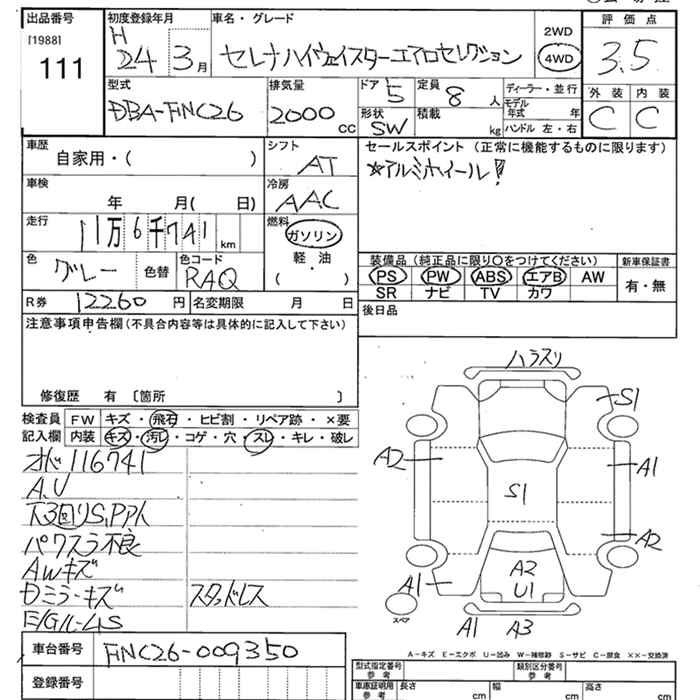 出品番号 初度登録年月 車名・グレード 2WD 評価点
[1988] H
111 24 3月 セレナハイウェイスターエアロセレクション 4WD 3.5
型式 排気量 ドア 5 定員 8人 ディーラー・並行 外装 内装
DBA-FNC26 2000cc 形状 SW 積載 kg モデル年式 年 C C
ハンドル 左・右
車歴 シフト セールスポイント (正常に機能するものに限ります)
自家用・( ) AT ☆アルミホイール!
車検 冷房
年 月( 日) AAC
走行 燃料
11万6千741km ガソリン
色 色替 色コード 軽油 装備品 (純正品に限り○をつけてください) 新車保証書
グレー RAQ ( ・ ) PS PW ABS エアB AW 有・無
R券 12260円 名変期限 月 日 SR ナビ TV カワ
注意事項申告欄 (不具合内容等は具体的に記入して下さい) 後日品
修復歴 有 〔箇所 〕
検査員 FW キズ・飛石・ヒビ割・リペア跡・×要
記入欄 内装 キズ・汚レ・コゲ・穴・スレ・キレ・破レ
オド116741
A.U
下3回りS,Pアト
パワスラ不良
AWキズ
Dミラーキズ スタッドレス
E/GルームS
ハラスリ
S1
A2 A1
S1
A2
A1 A2
U1
スペア
A1 A3
A-キズ E-エクボ U-凹み W-補修跡 S-サビ C-腐食 ××-交換済
車台番号 FNC26-009350
登録番号
型式指定番号 参考 類別区分番号 参考
車庫証明用 参考 長さ cm 幅 cm 高さ cm